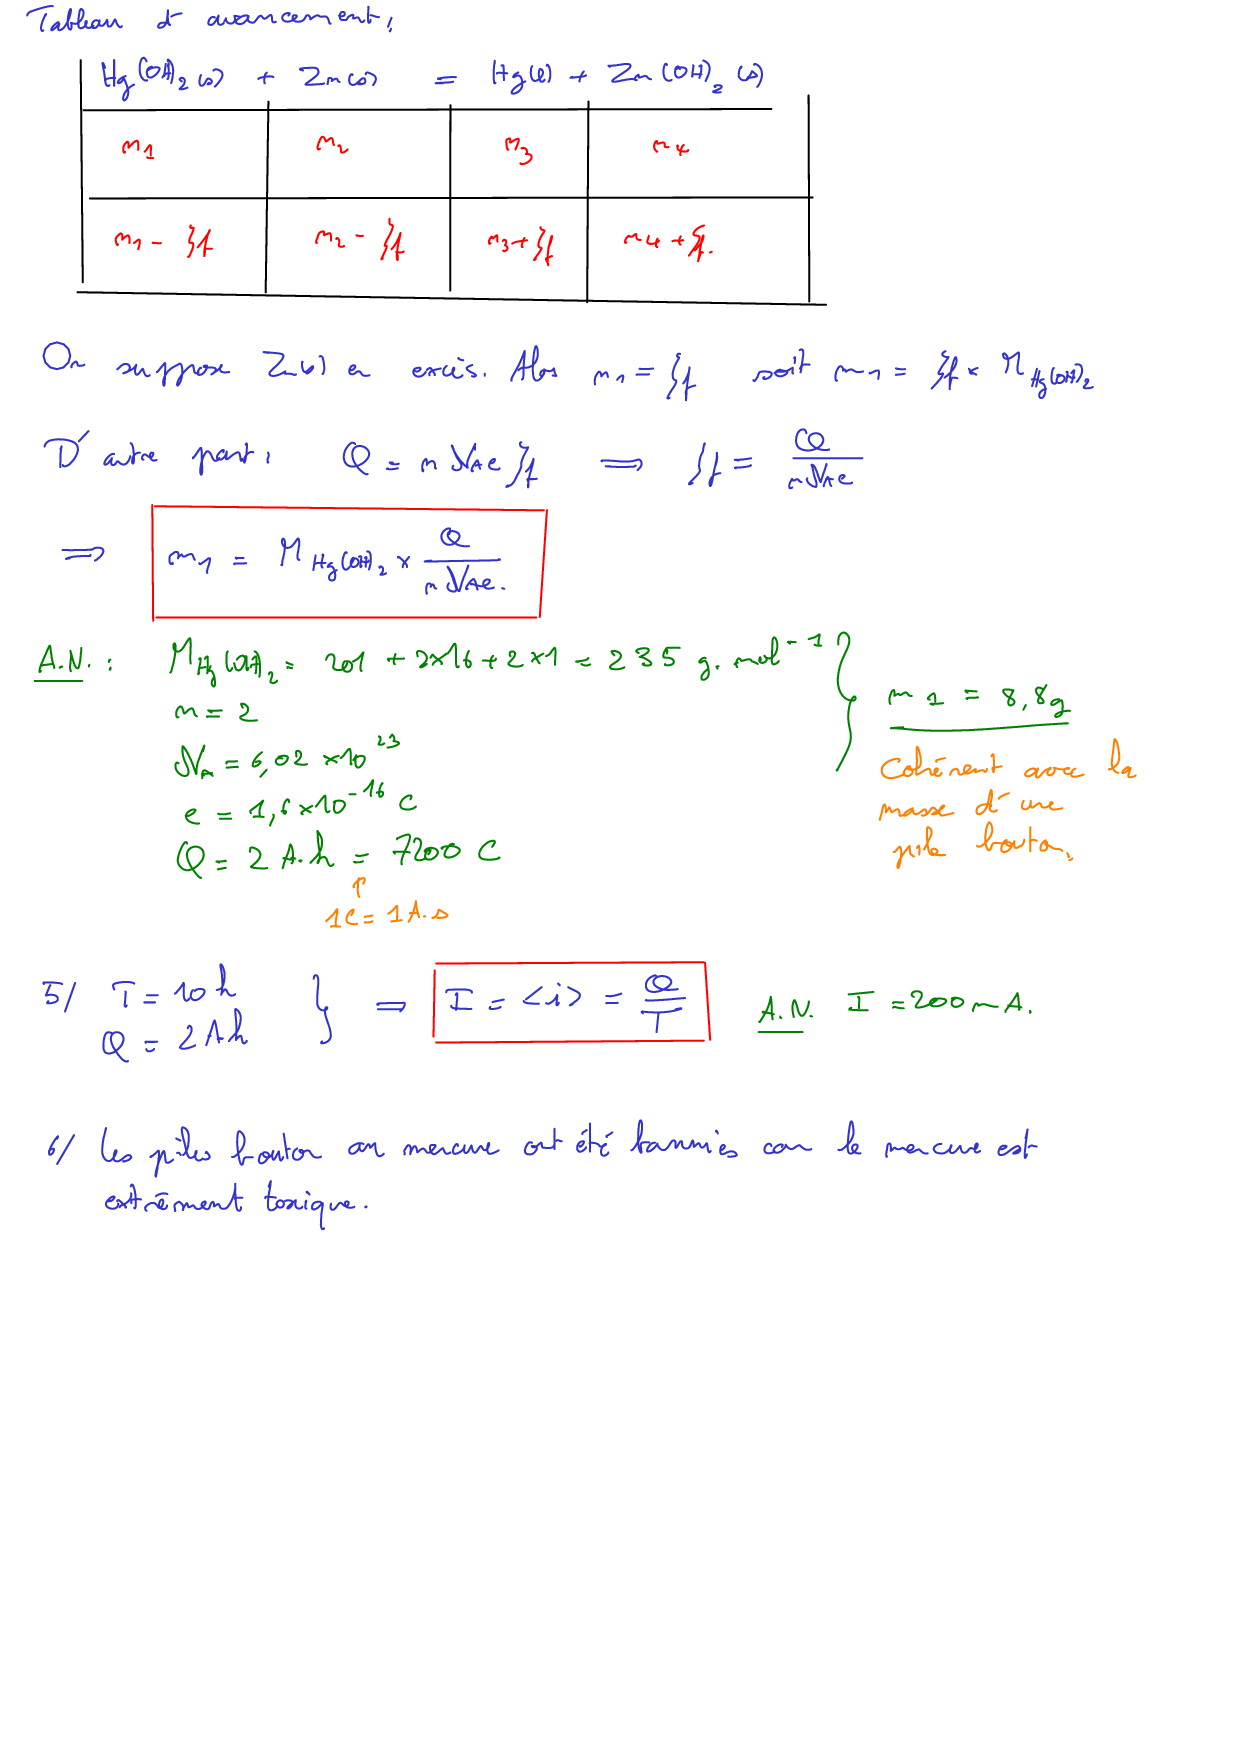 Tableau d'avancement :
Hg(OH)₂(s) + Zn(s) = Hg(l) + Zn(OH)₂(s)
n₁ n₂ n₃ n₄
n₁ - ξf n₂ - ξf n₃ + ξf n₄ + ξf.
On suppose Zn(s) en excès. Alors n₁ = ξf soit m₁ = ξf × M Hg(OH)₂
D'autre part : Q = n NAe ξf ⟹ ξf = Q / nNAe
⟹ m₁ = M Hg(OH)₂ × Q / nNAe.
A.N. : M Hg(OH)₂ = 201 + 2×16 + 2×1 = 235 g.mol⁻¹
n = 2
m₁ = 8,8g
NA = 6,02 ×10²³
Cohérent avec la
e = 1,6×10⁻¹⁶ C
masse d'une
Q = 2 A.h = 7200 C
pile bouton.
↑
1C = 1A.s
5/ T = 10h
Q = 2Ah
⟹ I = <i> = Q / T A.N. I = 200mA.
6/ Les piles bouton au mercure ont été bannies car le mercure est
extrêment toxique.